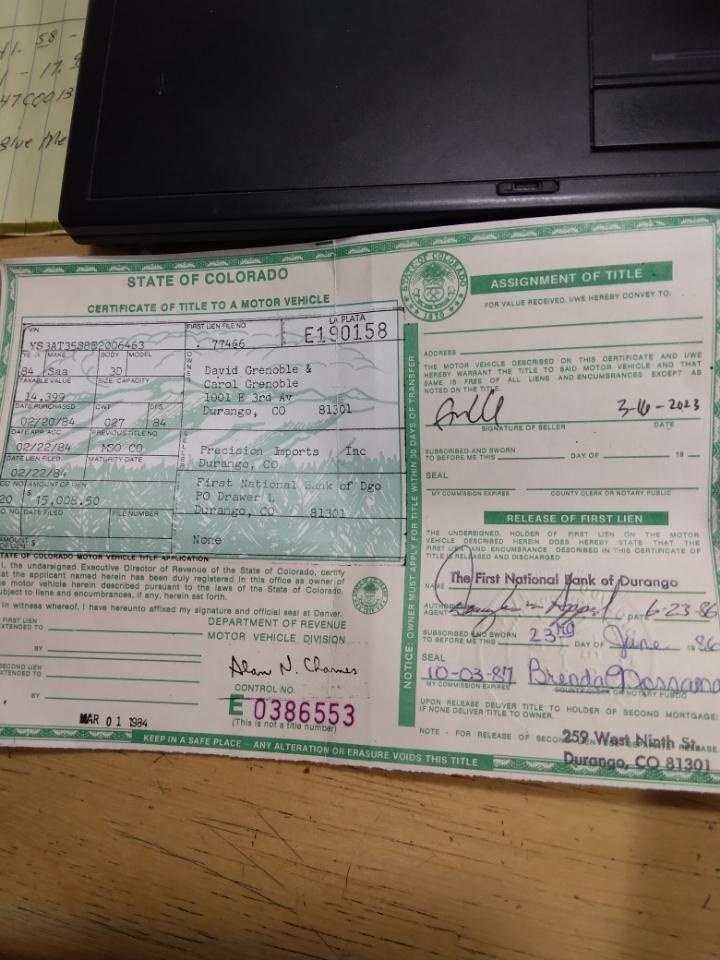 58 -
- 17.
Blue Me
STATE OF COLORADO
CERTIFICATE OF TITLE TO A MOTOR VEHICLE
VIN
FIRST LIEN FILE NO
LA PLATA
77466
E190158
MAKE BODY MODEL
84 Saa 3D
TAXABLE VALUE SIZE, CAPACITY
14,399
DATE PURCHASED CWT
02/20/84 027 84
DATE APP. ACC. PREVIOUS TITLE NO
02/22/84 MSO CO
DATE LIEN FILED MATURITY DATE
02/22/84
AMOUNT OF LIEN
20 $ 15,008.50
DATE FILED FILE NUMBER
AMOUNT
$
OWNER
David Grenoble &
Carol Grenoble
1001 E 3rd Av
Durango, CO 81301
Precision Imports Inc
Durango, CO
First National Bank of Dgo
PO Drawer L
Durango, CO 81301
None
STATE OF COLORADO MOTOR VEHICLE TITLE APPLICATION
I, the undersigned Executive Director of Revenue of the State of Colorado, certify
that the applicant named herein has been duly registered in this office as owner of
the motor vehicle herein described pursuant to the laws of the State of Colorado,
subject to liens and encumbrances, if any, herein set forth.
In witness whereof, I have hereunto affixed my signature and official seal at Denver.
FIRST LIEN
EXTENDED TO
BY
SECOND LIEN
EXTENDED TO
BY
MAR 01 1984
DEPARTMENT OF REVENUE
MOTOR VEHICLE DIVISION
Alan N. Charnes
CONTROL NO.
E 0386553
(This is not a title number)
KEEP IN A SAFE PLACE - ANY ALTERATION OR ERASURE VOIDS THIS TITLE
NOTICE: OWNER MUST APPLY FOR TITLE WITHIN 30 DAYS OF TRANSFER
STATE OF COLORADO
1876
ASSIGNMENT OF TITLE
FOR VALUE RECEIVED, I/WE HEREBY CONVEY TO:
ADDRESS
THE MOTOR VEHICLE DESCRIBED ON THIS CERTIFICATE AND I/WE
HEREBY WARRANT THE TITLE TO SAID MOTOR VEHICLE AND THAT
SAME IS FREE OF ALL LIENS AND ENCUMBRANCES EXCEPT AS
NOTED ON THE TITLE.
3-16-2023
SIGNATURE OF SELLER DATE
SUBSCRIBED AND SWORN
TO BEFORE ME THIS DAY OF 19
SEAL
MY COMMISSION EXPIRES COUNTY CLERK OR NOTARY PUBLIC
RELEASE OF FIRST LIEN
THE UNDERSIGNED, HOLDER OF FIRST LIEN ON THE MOTOR
VEHICLE DESCRIBED HEREIN DOES HEREBY STATE THAT THE
FIRST LIEN AND ENCUMBRANCE DESCRIBED IN THIS CERTIFICATE OF
TITLE IS RELEASED AND DISCHARGED
NAME The First National Bank of Durango
AUTHORIZED
AGENT DATE 6-23-86
SUBSCRIBED AND SWORN
TO BEFORE ME THIS 23RD DAY OF June 1986
SEAL
10-03-87 Brenda
MY COMMISSION EXPIRES COUNTY CLERK OR NOTARY PUBLIC
UPON RELEASE DELIVER TITLE TO HOLDER OF SECOND MORTGAGE
IF NONE DELIVER TITLE TO OWNER.
NOTE - FOR RELEASE OF SECOND
259 West Ninth St.
Durango, CO 81301